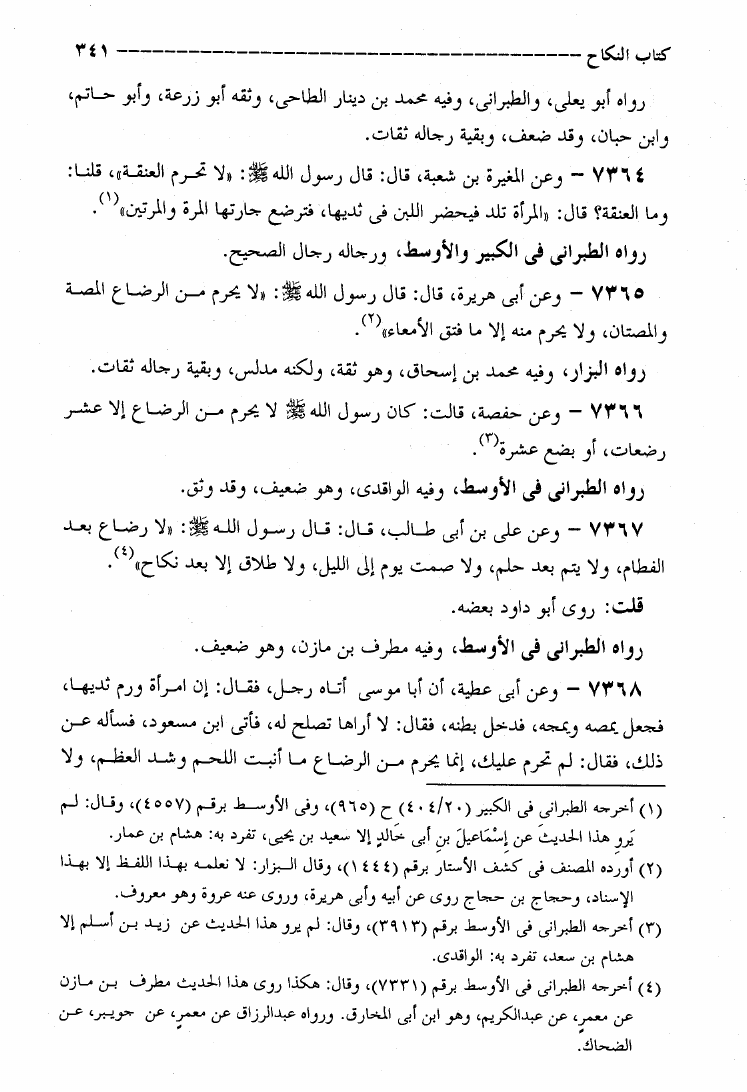 كتاب النكاح ------------------------------------------ ٣٤١
رواه أبو يعلى، والطبرانى، وفيه محمد بن دينار الطاحى، وثقه أبو زرعة، وأبو حاتم،
وابن حبان، وقد ضعف، وبقية رجاله ثقات.
٧٣٦٤ – وعن المغيرة بن شعبة، قال: قال رسول الله ﷺ: «لا تحرم العنقة»، قلنا:
وما العنقة؟ قال: «المرأة تلد فيحضر اللبن فى ثديها، فترضع جارتها المرة والمرتين»(١).
رواه الطبرانى فى الكبير والأوسط، ورجاله رجال الصحيح.
٧٣٦٥ – وعن أبى هريرة، قال: قال رسول الله ﷺ: «لا يحرم من الرضاع المصة
والمصتان، ولا يحرم منه إلا ما فتق الأمعاء»(٢).
رواه البزار، وفيه محمد بن إسحاق، وهو ثقة، ولكنه مدلس، وبقية رجاله ثقات.
٧٣٦٦ – وعن حفصة، قالت: كان رسول الله ﷺ لا يحرم من الرضاع إلا عشر
رضعات، أو بضع عشرة(٣).
رواه الطبرانى فى الأوسط، وفيه الواقدى، وهو ضعيف، وقد وثق.
٧٣٦٧ – وعن على بن أبى طالب، قال: قال رسول الله ﷺ: «لا رضاع بعد
الفطام، ولا يتم بعد حلم، ولا صمت يوم إلى الليل، ولا طلاق إلا بعد نكاح»(٤).
قلت: روى أبو داود بعضه.
رواه الطبرانى فى الأوسط، وفيه مطرف بن مازن، وهو ضعيف.
٧٣٦٨ – وعن أبى عطية، أن أبا موسى أتاه رجل، فقال: إن امرأة ورم ثديها،
فجعل يمصه ويمجه، فدخل بطنه، فقال: لا أراها تصلح له، فأتى ابن مسعود، فسأله عن
ذلك، فقال: لم تحرم عليك، إنما يحرم من الرضاع ما أنبت اللحم وشد العظم، ولا
(١) أخرجه الطبرانى فى الكبير (٤٠٤/٢٠) ح (٩٦٥)، وفى الأوسط برقم (٤٥٥٧)، وقال: لم
يَروِ هذا الحديثَ عن إِسْمَاعيلَ بن أبى خَالدٍ إلا سعيد بن يحيى، تفرد به: هشام بن عمار.
(٢) أورده المصنف فى كشف الأستار برقم (١٤٤٤)، وقال البزار: لا نعلمه بهذا اللفظ إلا بهذا
الإسناد، وحجاج بن حجاج روى عن أبيه وأبى هريرة، وروى عنه عروة وهو معروف.
(٣) أخرجه الطبرانى فى الأوسط برقم (٣٩١٣)، وقال: لم يرو هذا الحديث عن زيد بن أسلم إلا
هشام بن سعد، تفرد به: الواقدى.
(٤) أخرجه الطبرانى فى الأوسط برقم (٧٣٣١)، وقال: هكذا روى هذا الحديث مطرف بن مازن
عن معمرٍ، عن عبدالكريم، وهو ابن أبى المخارق. ورواه عبدالرزاق عن معمرٍ، عن جويبر، عن
الضحاك.